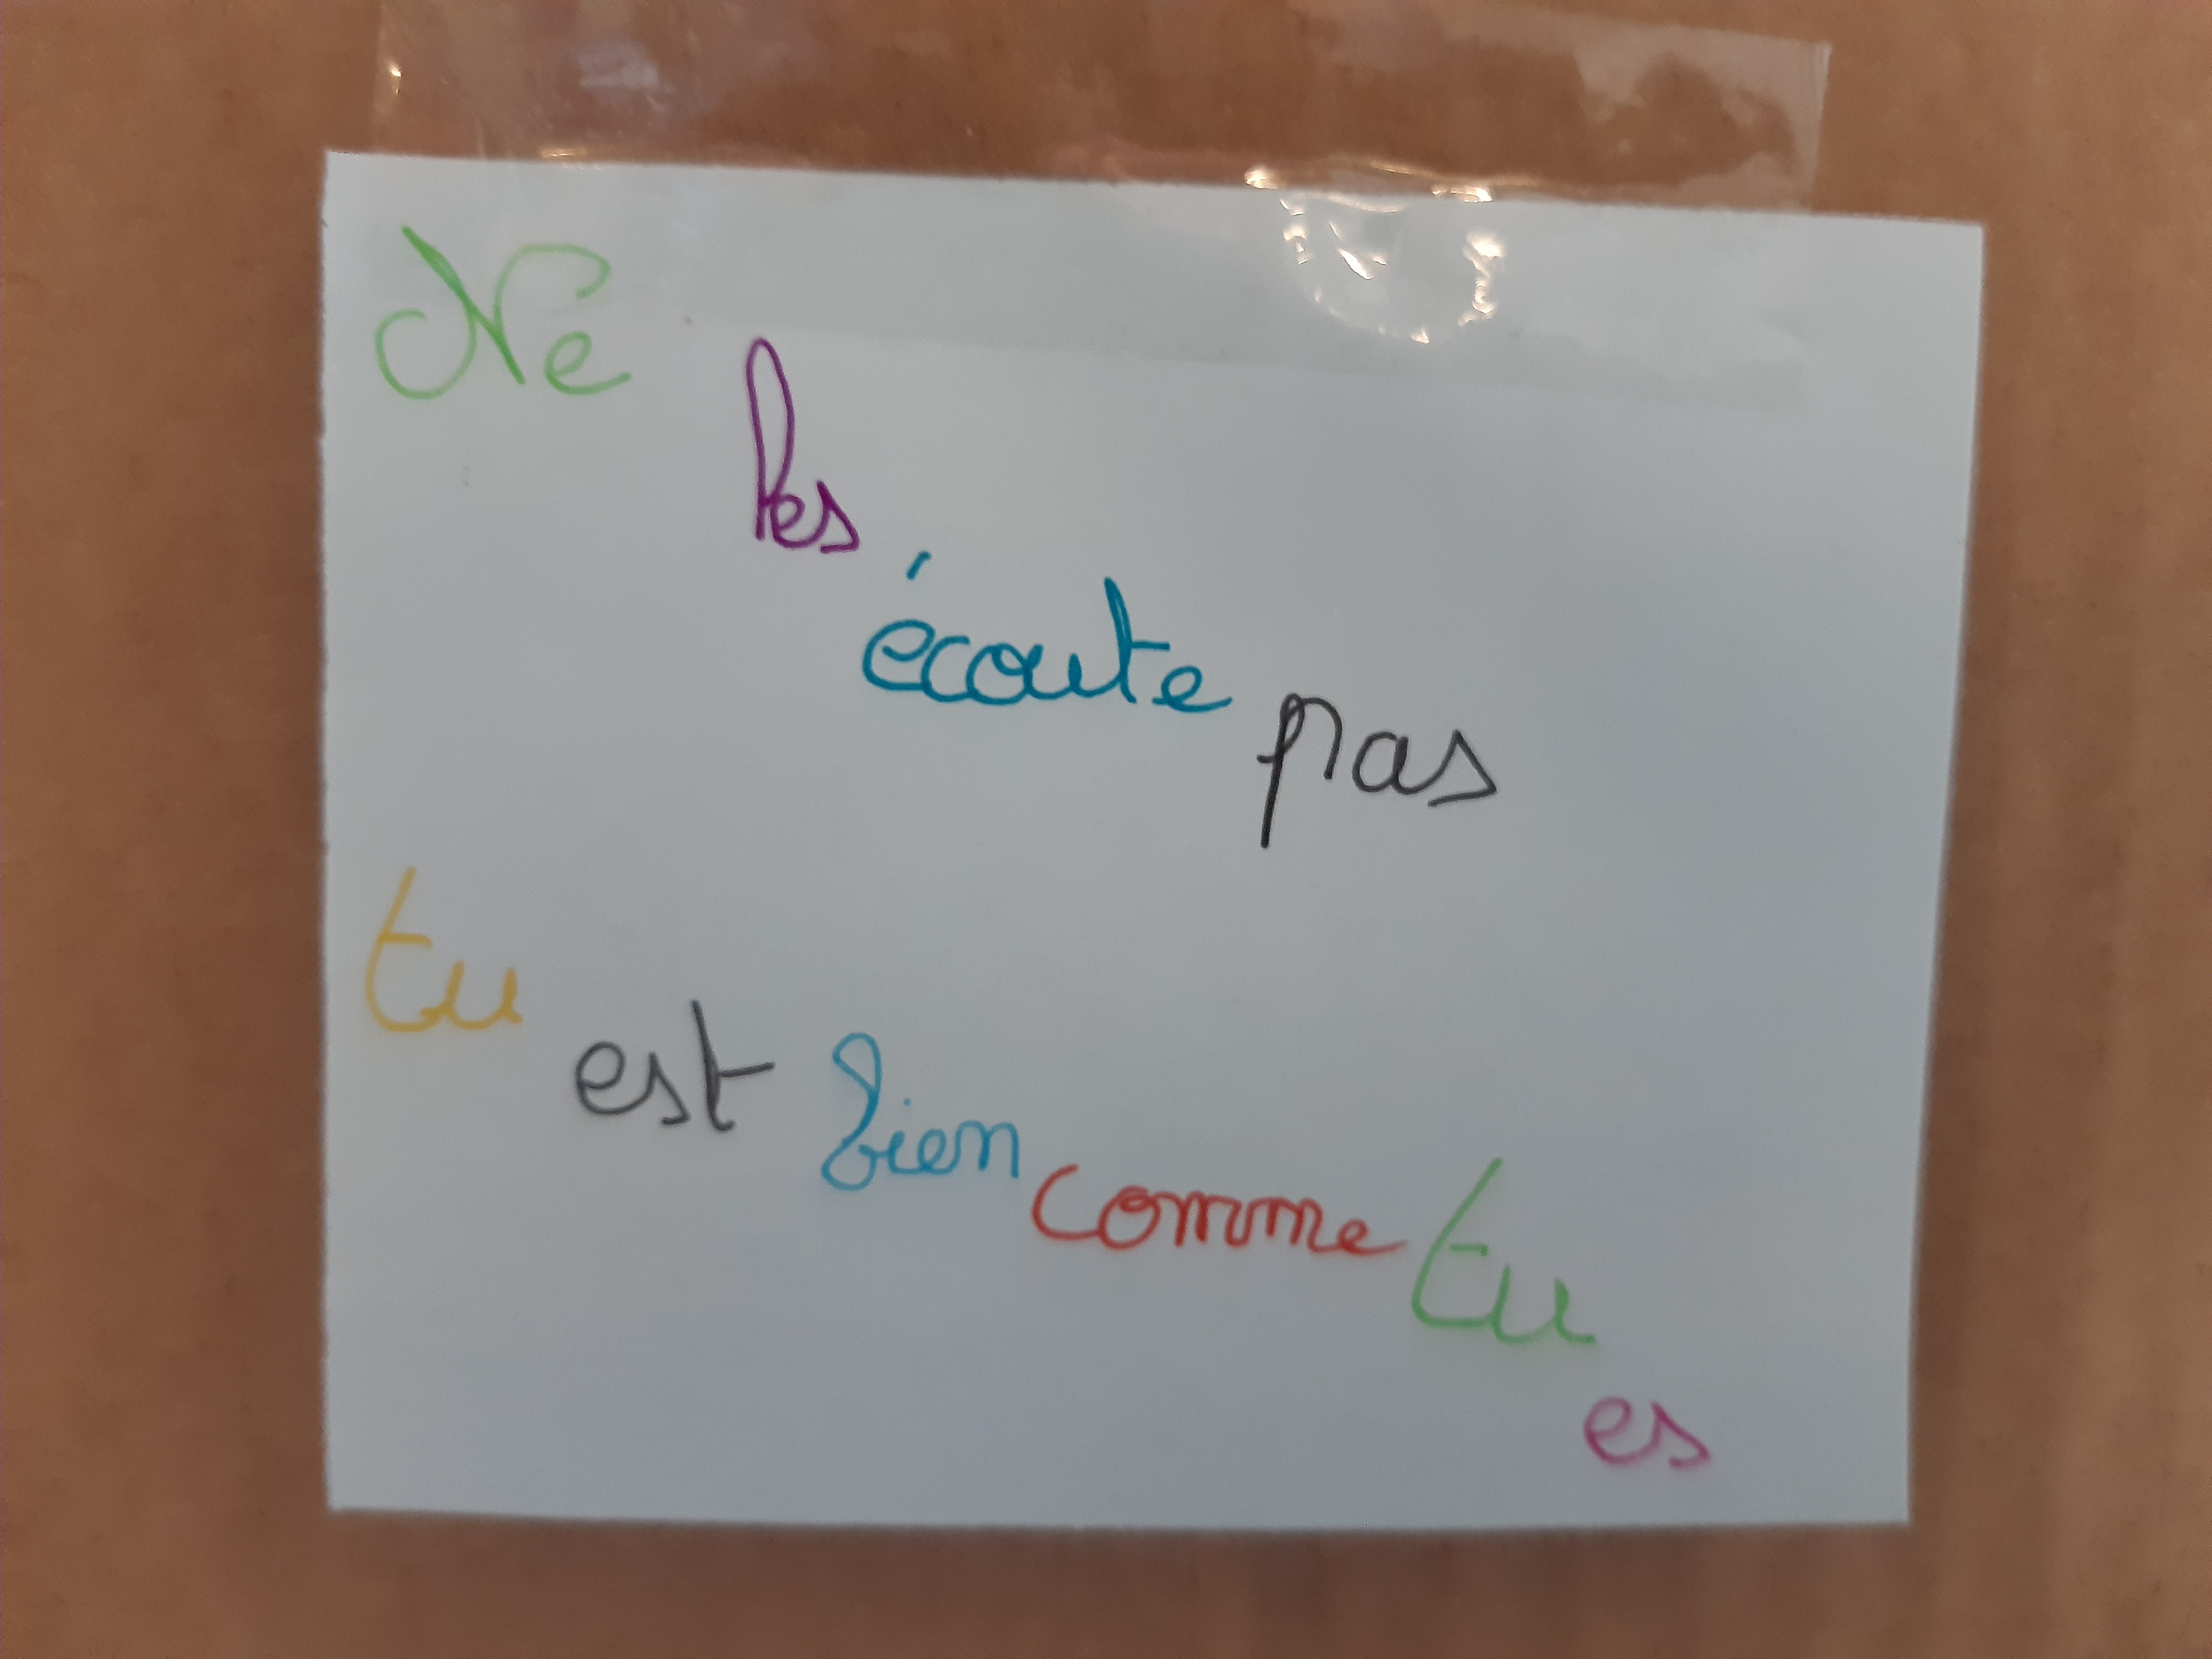 Ne les écoute pas
tu est bien comme tu es